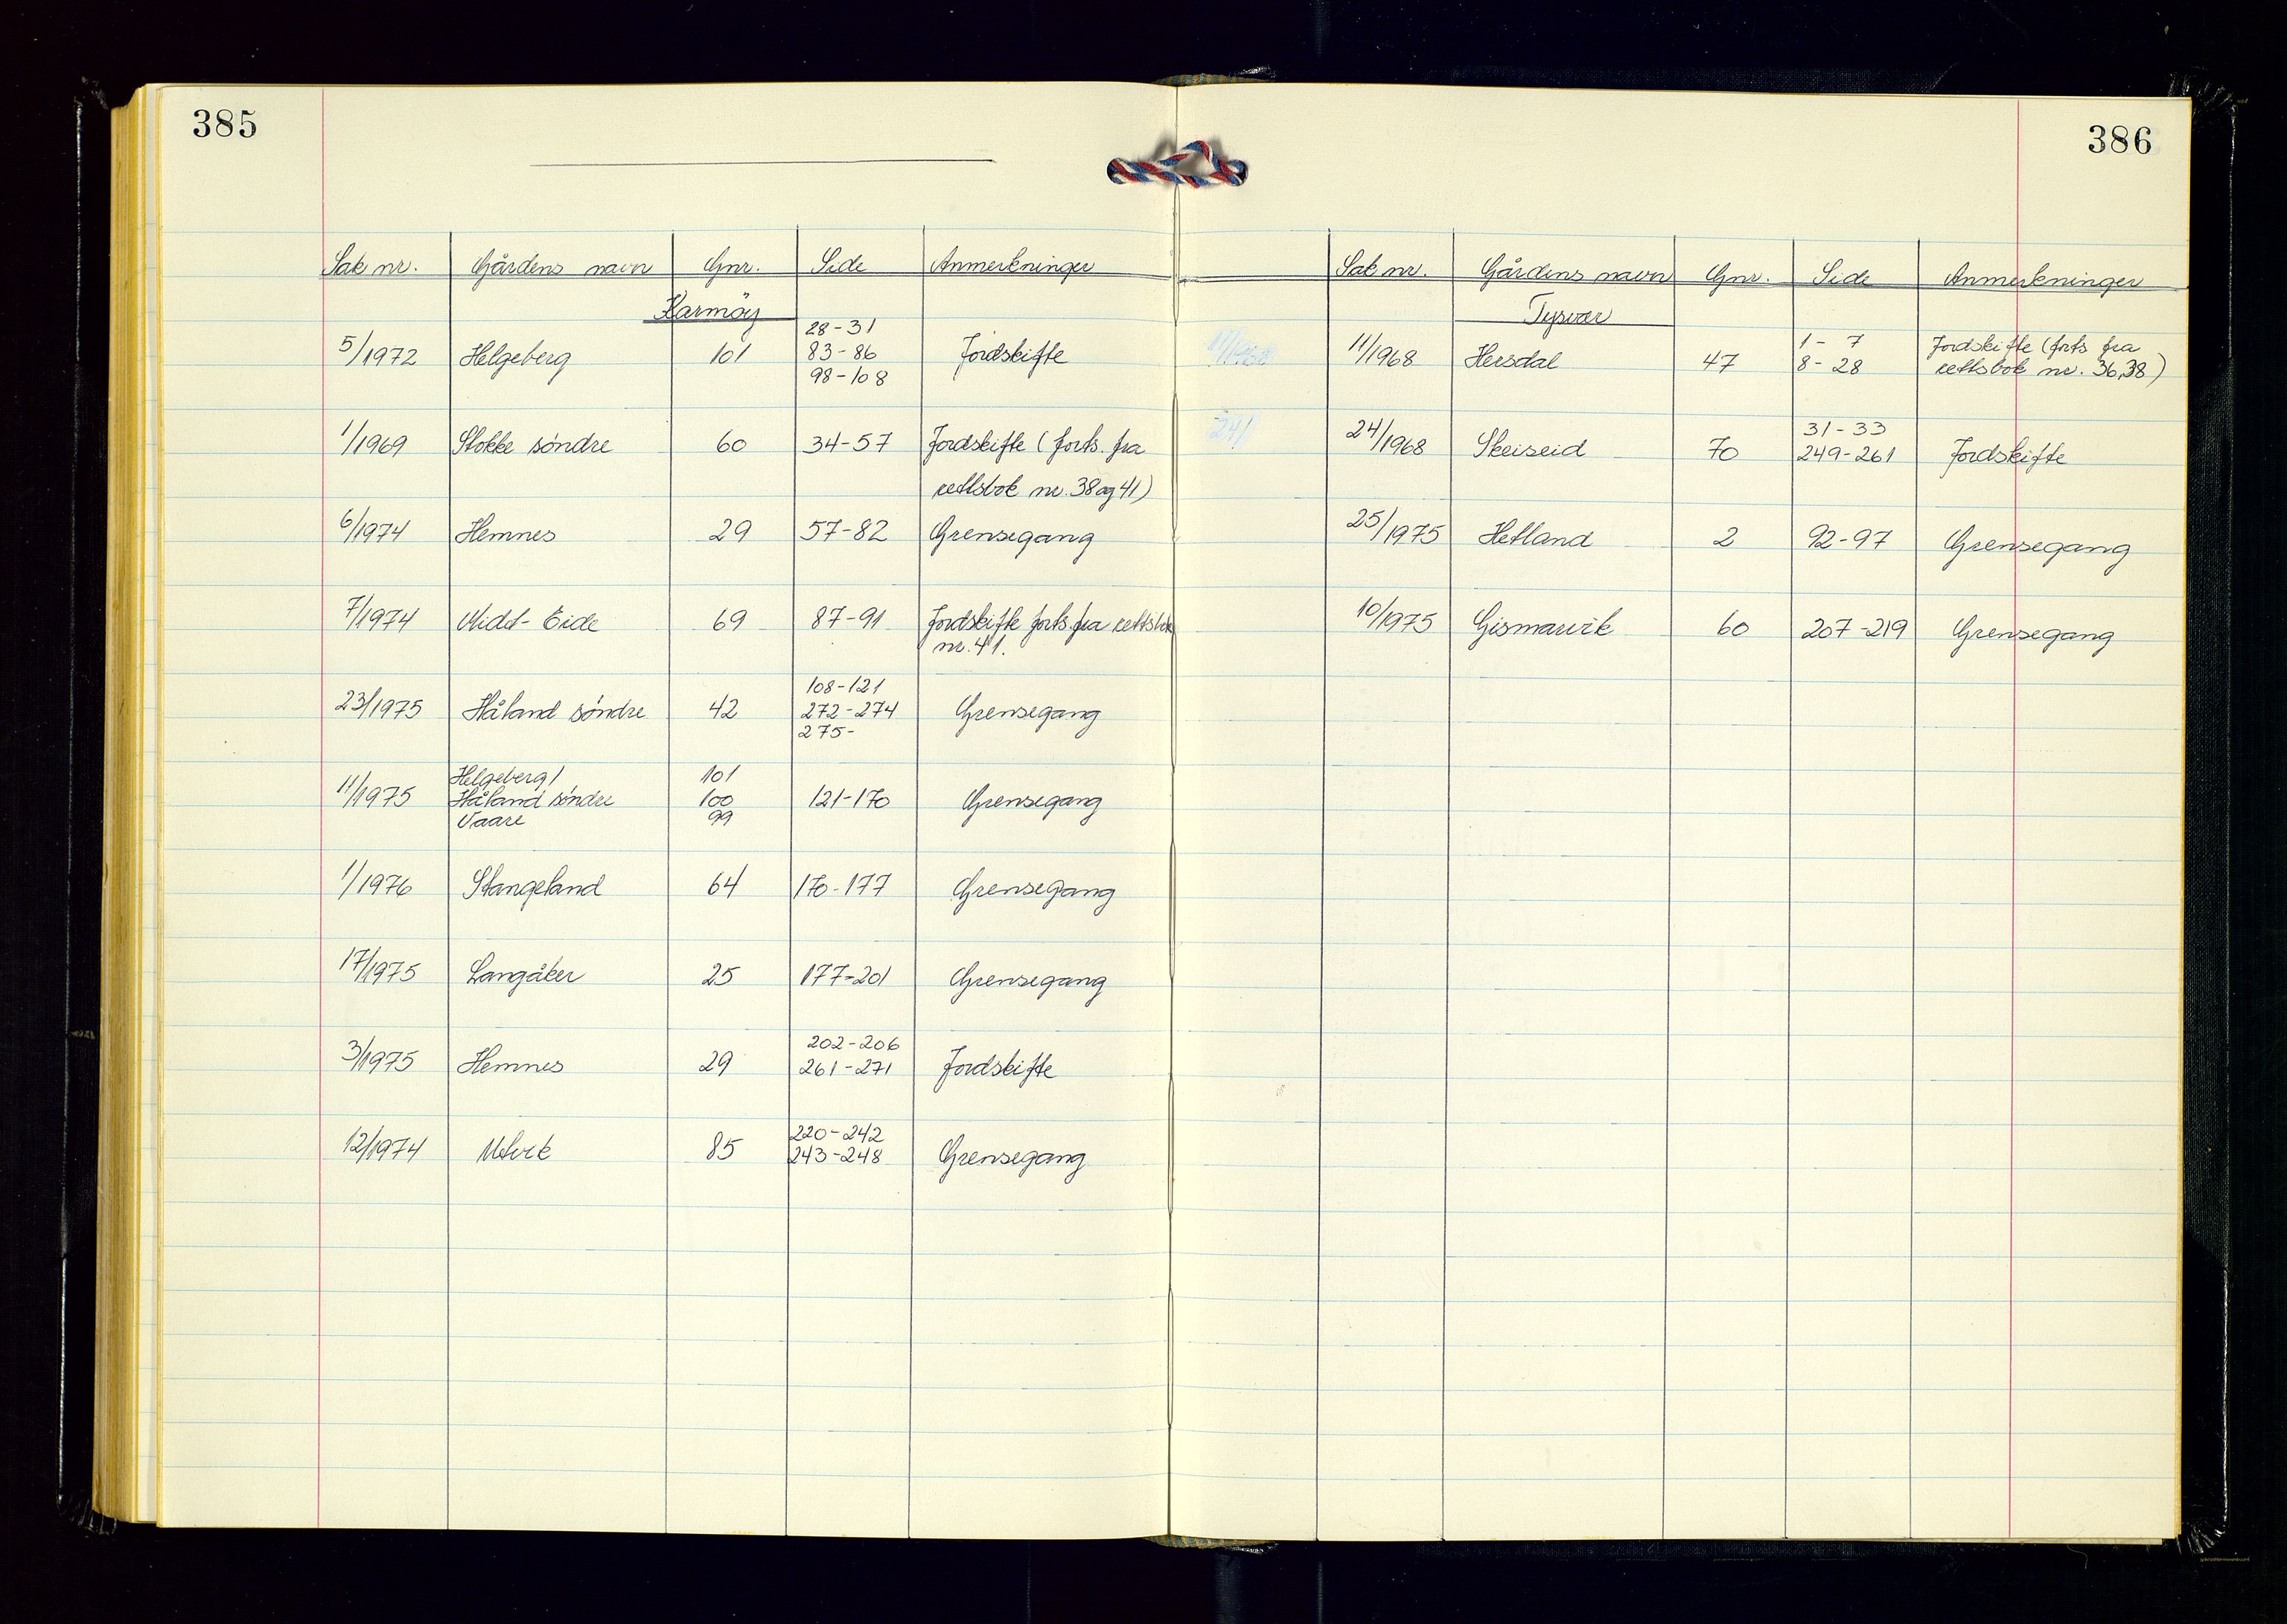 385
Sak nr. Gårdens navn Gnr. Side Anmerkninger
Karmöy
28-31
5/1972 Helgeberg 101 83-86 Jordskifte
98-108
1/1969 Stokke söndre 60 34-57 Jordskifte (forts. fra
rettsbok nr. 38 og 41)
6/1974 Hemnes 29 57-82 Grensegang
7/1974 Midt-Eide 69 87-91 Jordskifte forts. fra rettsbok
nr. 41.
108-121
23/1975 Håland söndre 42 272-274 Grensegang
275-
Helgeberg/ 101
11/1975 Håland söndre 100 121-170 Grensegang
Vaare 99
1/1976 Stangeland 64 170-177 Grensegang
17/1975 Langåker 25 177-201 Grensegang
202-206
3/1975 Hemnes 29 261-271 Jordskifte
220-242
12/1974 Utvik 85 243-248 Grensegang
386
Sak nr. Gårdens navn Gnr. Side Anmerkninger
Tysvær
1-7 Jordskifte (forts fra
11/1968 Hersdal 47 8-28 rettsbok nr. 36,38)
31-33
24/1968 Skeiseid 70 249-261 Jordskifte
25/1975 Hetland 2 92-97 Grensegang
10/1975 Gismarvik 60 207-219 Grensegang